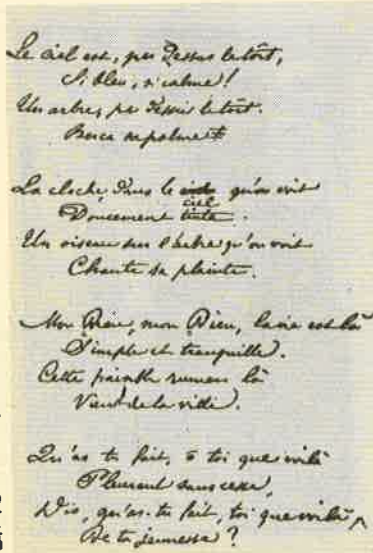 Le ciel est, par dessus le toit,
Si bleu, si calme!
Un arbre, par dessus le toit.
Berce sa palme
La cloche, dans le ciel qu'on voit
Doucement tinte.
Un oiseau sur l'arbre qu'on voit
Chante sa plainte.
Mon Dieu, mon Dieu, la vie est là
Simple et tranquille.
Cette paisible rumeur là
Vient de la ville.
Qu'as tu fait, ô toi que voilà
Pleurant sans cesse,
Dis, qu'as-tu fait, toi que voilà,
De ta jeunesse?